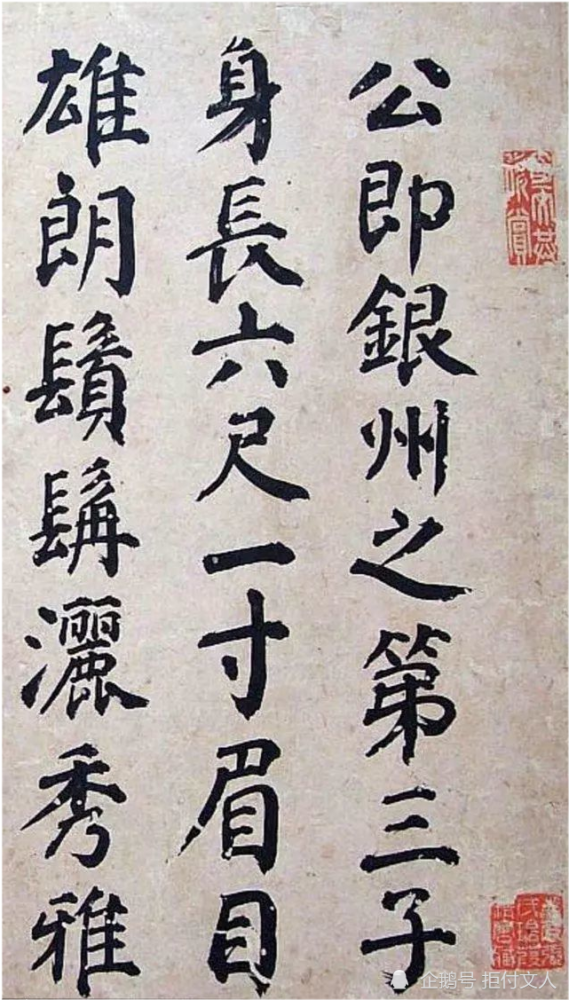 公即銀州之第三子
身長六尺一寸眉目
雄朗鬚髯灑秀雅
企鹅号 拒付文人